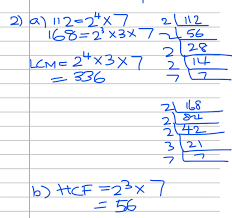 2) a) 112 = 2⁴ × 7
168 = 2³ × 3 × 7
LCM = 2⁴ × 3 × 7
= 336
2 | 112
2 | 56
2 | 28
2 | 14
7 | 7
2 | 168
2 | 84
2 | 42
3 | 21
7 | 7
b) HCF = 2³ × 7
= 56